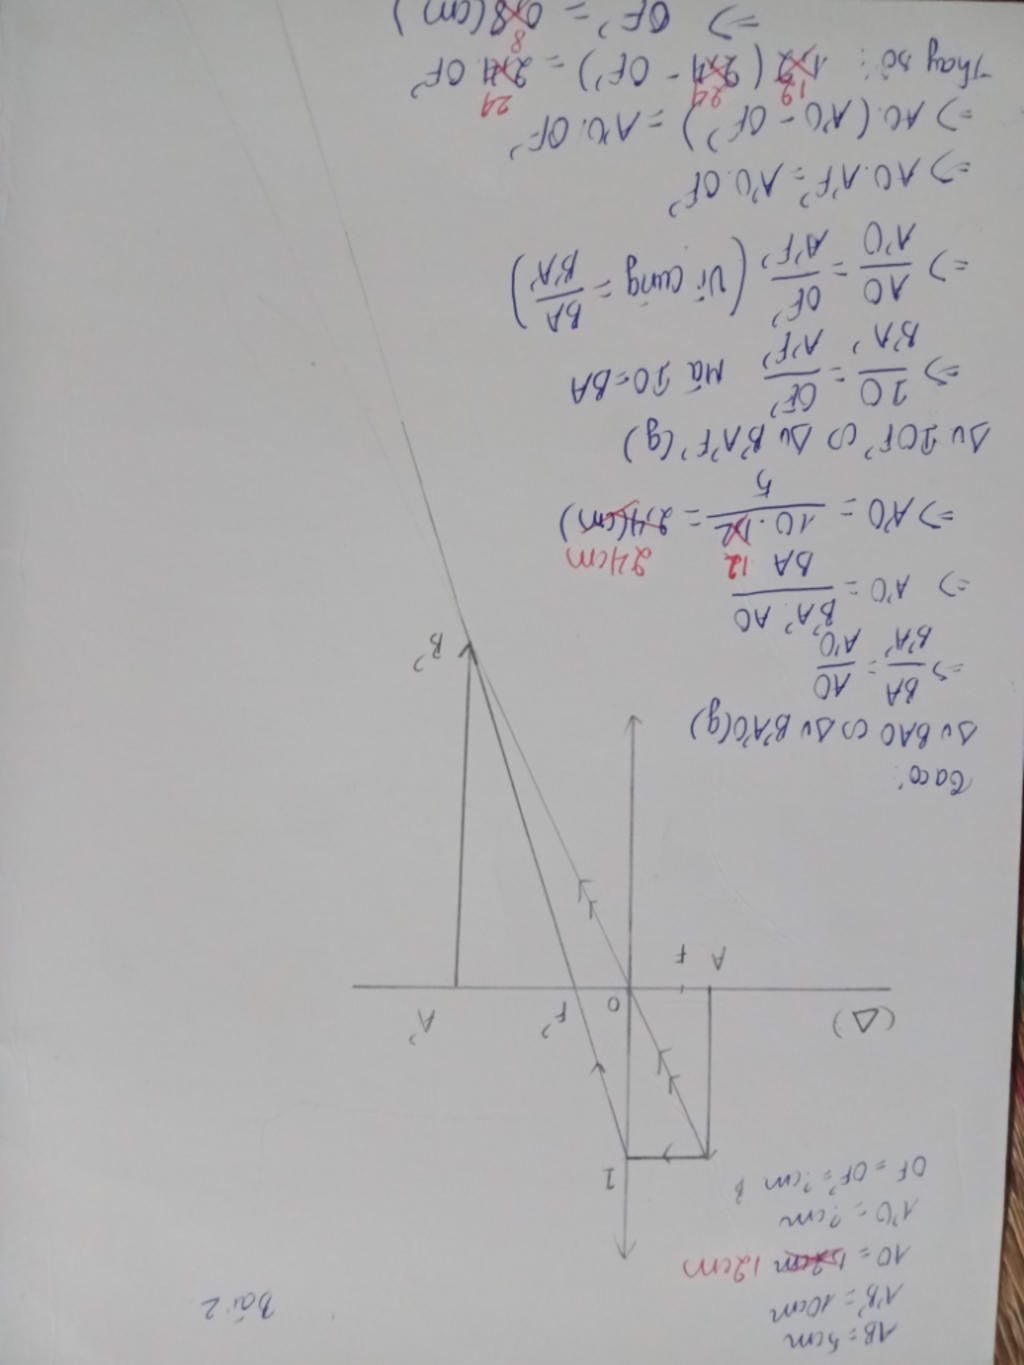 Bài 2
AB = 5cm
A'B' = 10cm
AO = 1,2cm 12cm
A'O = ?cm
OF = OF' = ?cm
B
I
(Δ)
A
F
O
F'
A'
B'
Ta có:
Δv BAO ∽ Δv B'A'O (g)
=> BA/B'A' = AO/A'O
=> A'O = B'A'.AO/BA
=> A'O = 10.1,2/5 = 2,4(cm)
12
24cm
Δv IOF' ∽ Δv B'A'F' (g)
=> IO/B'A' = OF'/A'F' mà IO=BA
=> AO/A'O = OF'/A'F' (Vì cùng = BA/B'A')
=> AO.A'F' = A'O.OF'
=> AO.(A'O - OF') = A'O.OF'
Thay số: 1,2(2,4 - OF') = 2,4.OF'
12 24 24
=> OF' = 0,8(cm)
8